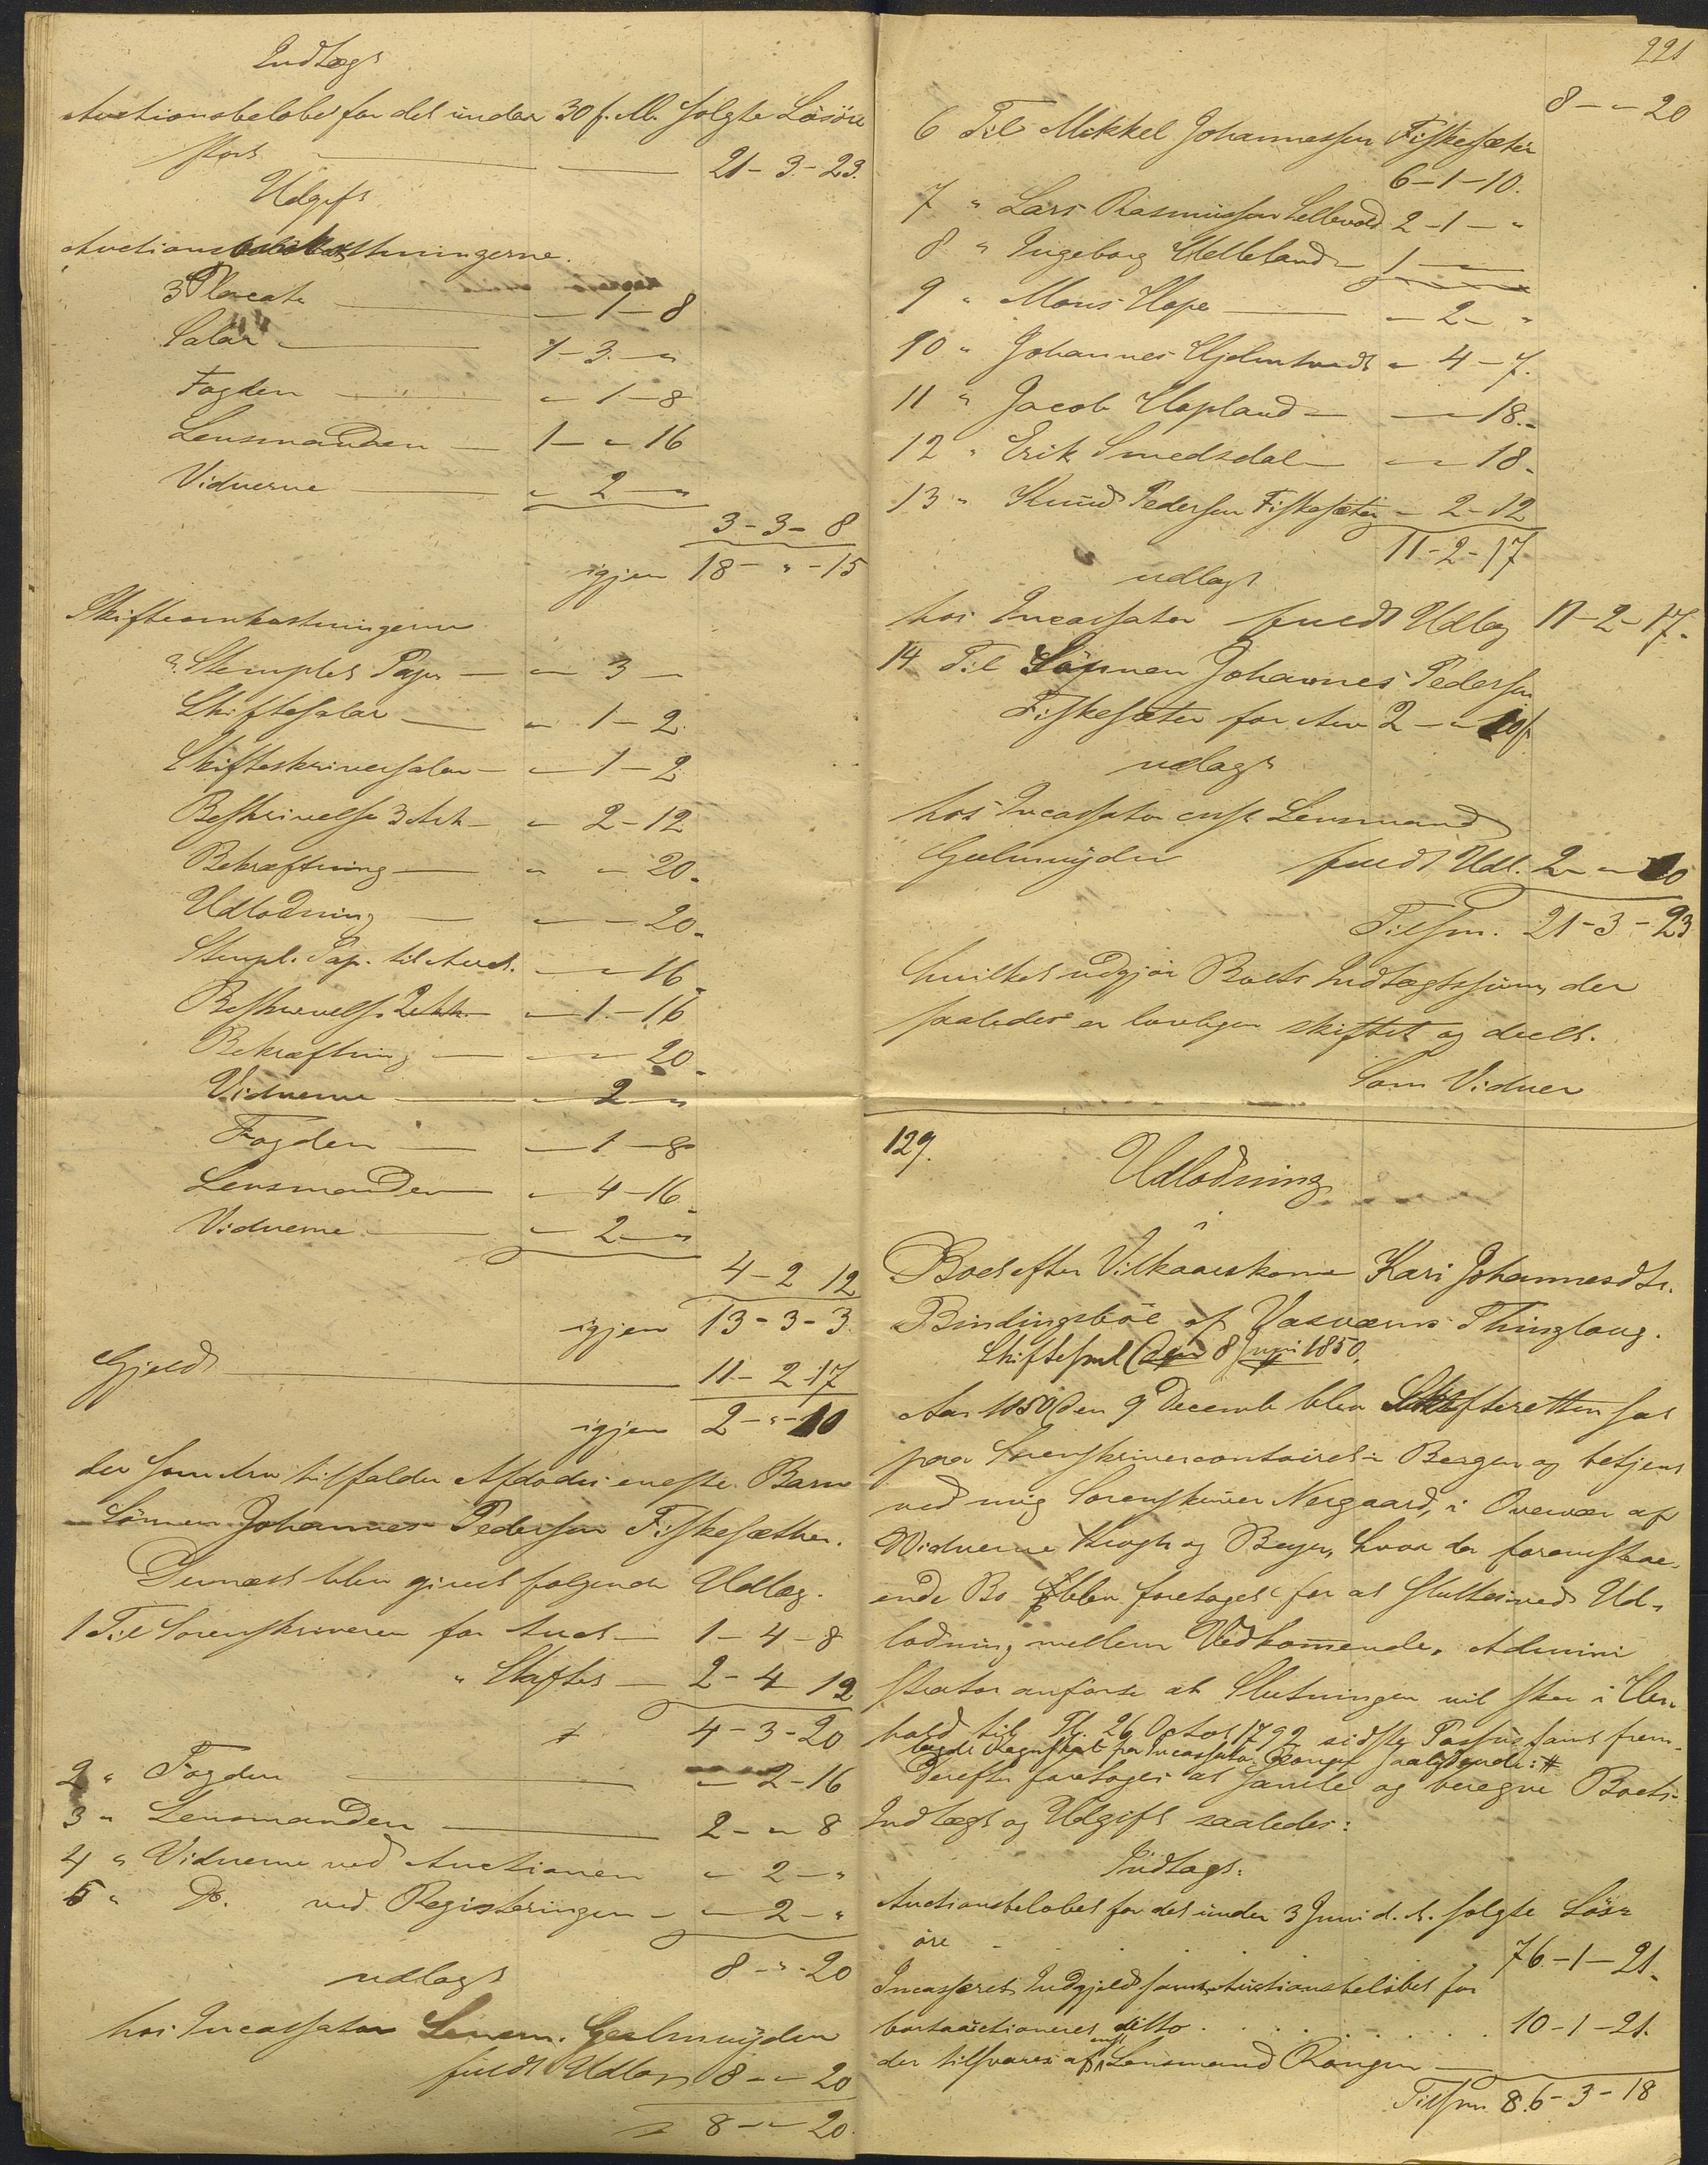 Indtægt
Auctionsbeløbet for det under 30 f. M. solgte Løsöre
stort 21-3-23.
Udgift
Auctionsomkostningerne.
3 Placate - 1-8
Salær 1-3-"
Fogden " 1-8
Lensmanden 1-"-16
Vidnerne " 2-"
3-3-8
igjen 18-"-15
Skifteomkostningerne
Stemplet Papir " 3 -
Skiftesalær " 1-2
Skifteskriversalær " 1-2
Beskrivelse 3 Ark " 2-12
Bekræftning " " 20.
Udlodning " " 20.
Stempl. Pap. til Auct. " " 16.
Beskrivelse 2 Ark " 1-16
Bekræftning " " 20.
Vidnerne " 2 "
Fogden " 1-8
Lensmanden " 4-16.
Vidnerne " 2 "
4-2 12
igjen 13-3-3.
Gjeld 11-2-17
igjen 2-"-10
der som Arv tilfalder Afdødes eneste Barn
Sönnen Johannes Pedersen Fiskesæther.
Dernæst blev givet følgende Udlæg.
1 Til Sorenskriveren for Auct. 1-4-8
" Skiftet 2-4-12
4-3-20
2 " Fogden " 2-16
3 " Lensmanden 2-"-8
4 " Vidnerne ved Auctionen " 2-"
5 " Do. ved Registeringen " 2-"
8-"-20
udlagt
hos Incassator Lensm. Geelmuyden
fuldt Udlæg 8-"-20
8-"-20.
221
8-"-20
6 Til Mikkel Johannessen Fiskesæter
6-1-10.
7 " Lars Rasmussen Sellevold 2-1-"
8 " Ingeborg Helleland 1 -
9 " Mons Hope " 2-"
10 " Johannes Hjelmtvedt " 4-7.
11 " Jacob Hopland " " 18.
12 " Erik Smedsdal " " 18.
13 " Knud Pedersen Fiskesæter " 2-12
11-2-17
udlagt
hos Incassator fuldt Udlæg 11-2-17.
14 Til Sönnen Johannes Pedersen
Fiskesæter for Arv 2-"-10 s
udlagt
hos Incassator const Lensmand
Geelmuyden fuldt Udl. 2-"-10
Tilsm. 21-3-23
hvilket udgjör Boets Indtægtssum, der
saaledes er lovligen skiftet og deelt.
Som Vidner
129.
Udlodning
i
Boet efter Vilkaarskone Kari Johannesdtr.
Bindingsböe af Thinglaug.
Skiftesml (den 8 Juni 1850.
Aar 1850 den 9 Decembr blev Skifteretten sat
paa Sorenskrivercontoiret i Bergen og betjent
ved mig Sorenskriver Nergaard, i Overvær af
Vidnerne Krogh og Beyer, hvor da foranstaa-
ende Bo blev foretaget for at sluttes ved Ud-
lodning mellem Vedkommende. Admini
strator anförte at Slutningen vil skee i Hen-
hold til Pl. 26 Octob 1792 sidste Passus samt frem-
lagde Regnskab fra Incassator Rongen saalydende: #
Derefter foretoges at samle og beregne Boets
Indtægt og Udgift saaledes:
Indtægt:
Auctionsbeløbet for det under 3 Juni d. A. solgte Lös-
öre 76-1-21.
Incasseret Indgjeld samt Auctionsbeløbet for
bortauctioneret ditto 10-1-21.
der tilsvares af const Lensmand Rongen
Tilsm. 86-3-18